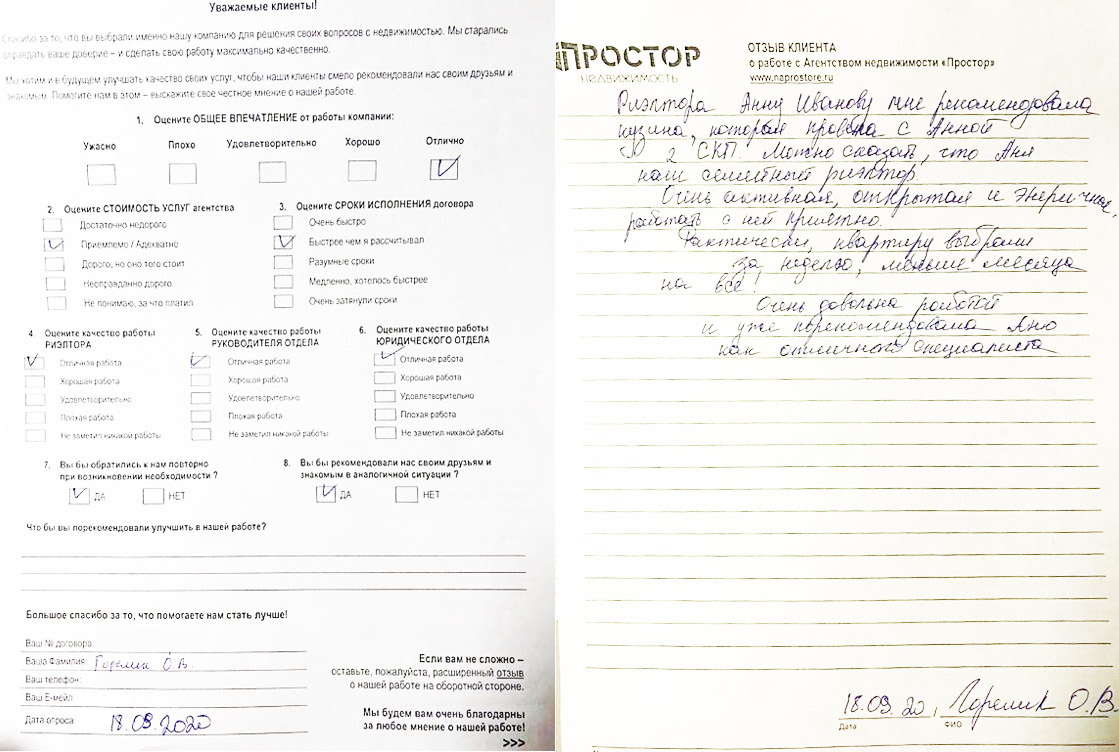 Уважаемые клиенты!
Спасибо за то, что вы выбрали именно нашу компанию для решения своих вопросов с недвижимостью. Мы старались
оправдать ваше доверие – и сделать свою работу максимально качественно.
Мы хотим и в будущем улучшать качество своих услуг, чтобы наши клиенты смело рекомендовали нас своим друзьям и
знакомым. Помогите нам в этом – выскажите свое честное мнение о нашей работе.
1. Оцените ОБЩЕЕ ВПЕЧАТЛЕНИЕ от работы компании:
Ужасно Плохо Удовлетворительно Хорошо Отлично
2. Оцените СТОИМОСТЬ УСЛУГ агентства
Достаточно недорого
Приемлемо / Адекватно
Дорого, но оно того стоит
Неоправданно дорого
Не понимаю, за что платил
3. Оцените СРОКИ ИСПОЛНЕНИЯ договора
Очень быстро
Быстрее чем я рассчитывал
Разумные сроки
Медленно, хотелось быстрее
Очень затянули сроки
4. Оцените качество работы
РИЭЛТОРА
Отличная работа
Хорошая работа
Удовлетворительно
Плохая работа
Не заметил никакой работы
5. Оцените качество работы
РУКОВОДИТЕЛЯ ОТДЕЛА
Отличная работа
Хорошая работа
Удовлетворительно
Плохая работа
Не заметил никакой работы
6. Оцените качество работы
ЮРИДИЧЕСКОГО ОТДЕЛА
Отличная работа
Хорошая работа
Удовлетворительно
Плохая работа
Не заметил никакой работы
7. Вы бы обратились к нам повторно
при возникновении необходимости ?
ДА НЕТ
8. Вы бы рекомендовали нас своим друзьям и
знакомым в аналогичной ситуации ?
ДА НЕТ
Что бы вы порекомендовали улучшить в нашей работе?
Большое спасибо за то, что помогаете нам стать лучше!
Ваш № договора:
Ваша Фамилия: Горелик О.В.
Ваш телефон:
Ваш Е-мейл
Дата опроса: 18.09.2020
Если вам не сложно –
оставьте, пожалуйста, расширенный отзыв
о нашей работе на оборотной стороне.
Мы будем вам очень благодарны
за любое мнение о нашей работе!
>>>
ПРОСТОР
НЕДВИЖИМОСТЬ
ОТЗЫВ КЛИЕНТА
о работе с Агентством недвижимости «Простор»
www.naprostore.ru
Риэлтора Анну Иванову мне рекомендовала
кузина, которая провела с Анной
2 СКП. Можно сказать, что Аня
наш семейный риэлтор.
Очень активная, открытая и энергичная,
работать с ней приятно.
Фактически, квартиру выбрали
за неделю, меньше месяца
на всё!
Очень довольна работой
и уже порекомендовала Аню
как отличного специалиста
18.09.20, Горелик О.В.
Дата ФИО